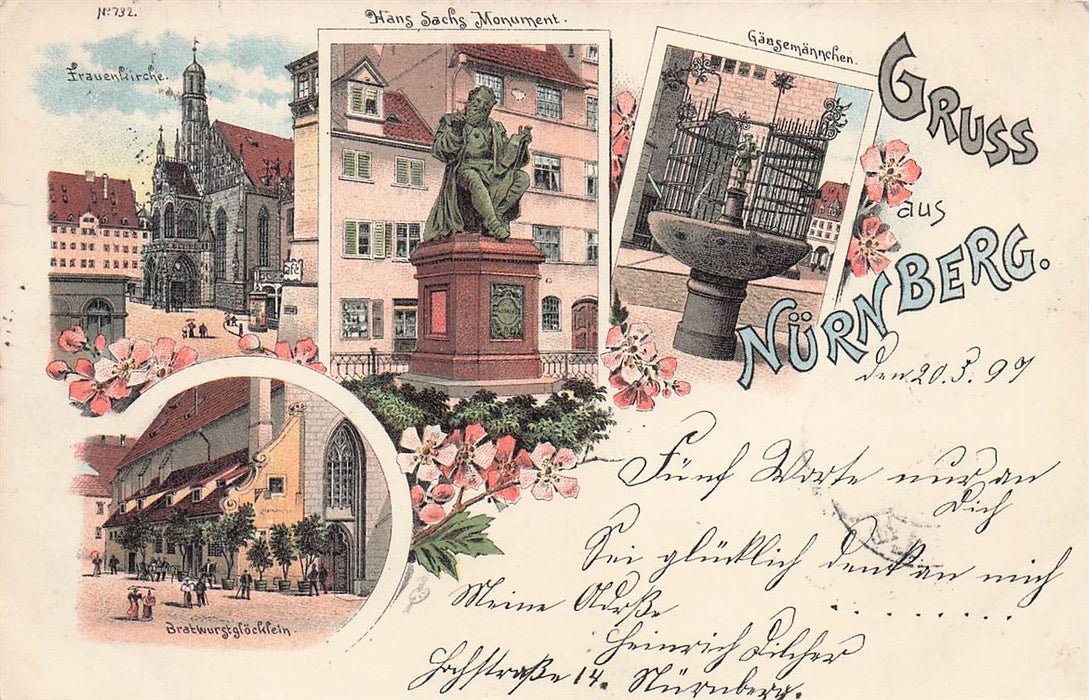 No 732.
Hans Sachs Monument.
Gänsemännchen.
Frauenkirche.
GRUSS
aus
NÜRNBERG.
Café
den 20.5.97
Fünf Worte nur an
Dich
Sei glücklich denk an mich
. . . . . . . . . .
Meine Adreße
Heinrich Filcher
Hochstraße 14. Nürnberg.
Bratwurstglöcklein.